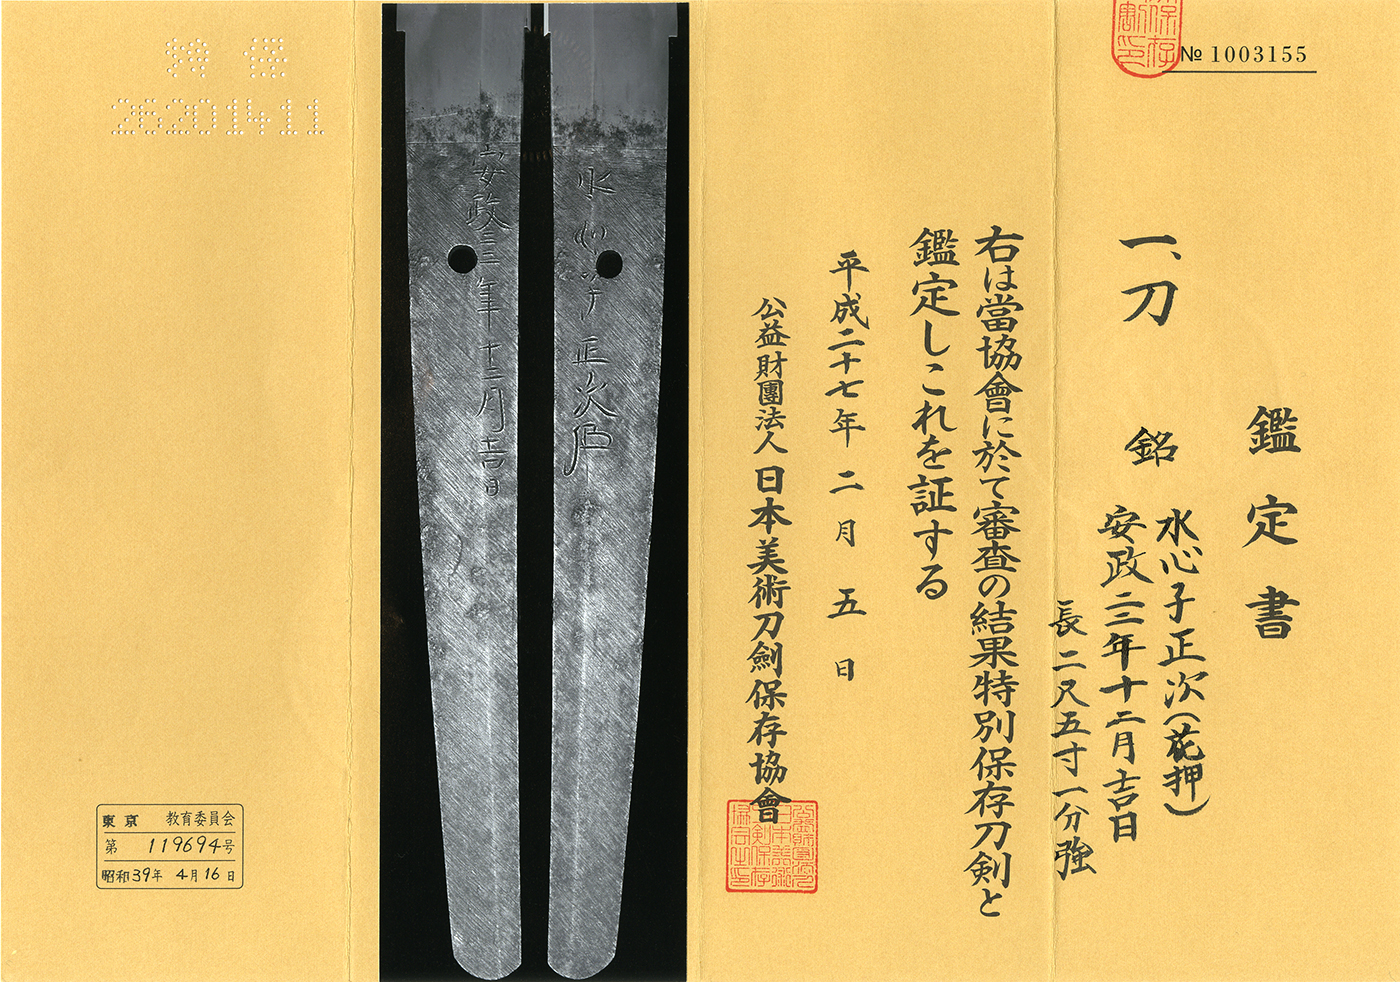 № 1003155
鑑定書
一、刀 銘 水心子正次(花押)
安政二三年十二月吉日
長二尺五寸一分強
右は當協會に於て審査の結果特別保存刀剣と
鑑定しこれを証する
平成二十七年二月五日
公益財團法人日本美術刀劍保存協會
水心子正次
安政二三年十二月吉日
26201411
東京 教育委員会
第 119694号
昭和39年 4月16日